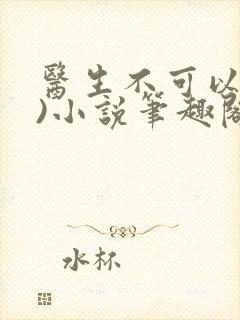 醫生不可以
)小說筆趣閣
水杯